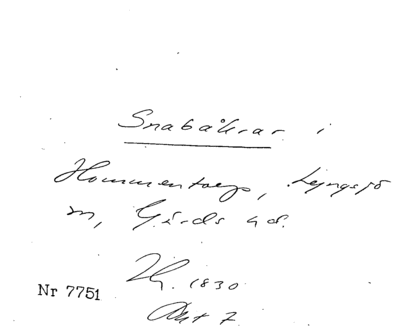 Snabåkrar i
Hommentorp, Lyngsjö
sn, Gärds hd.
1830
Nr 7751
Akt 7